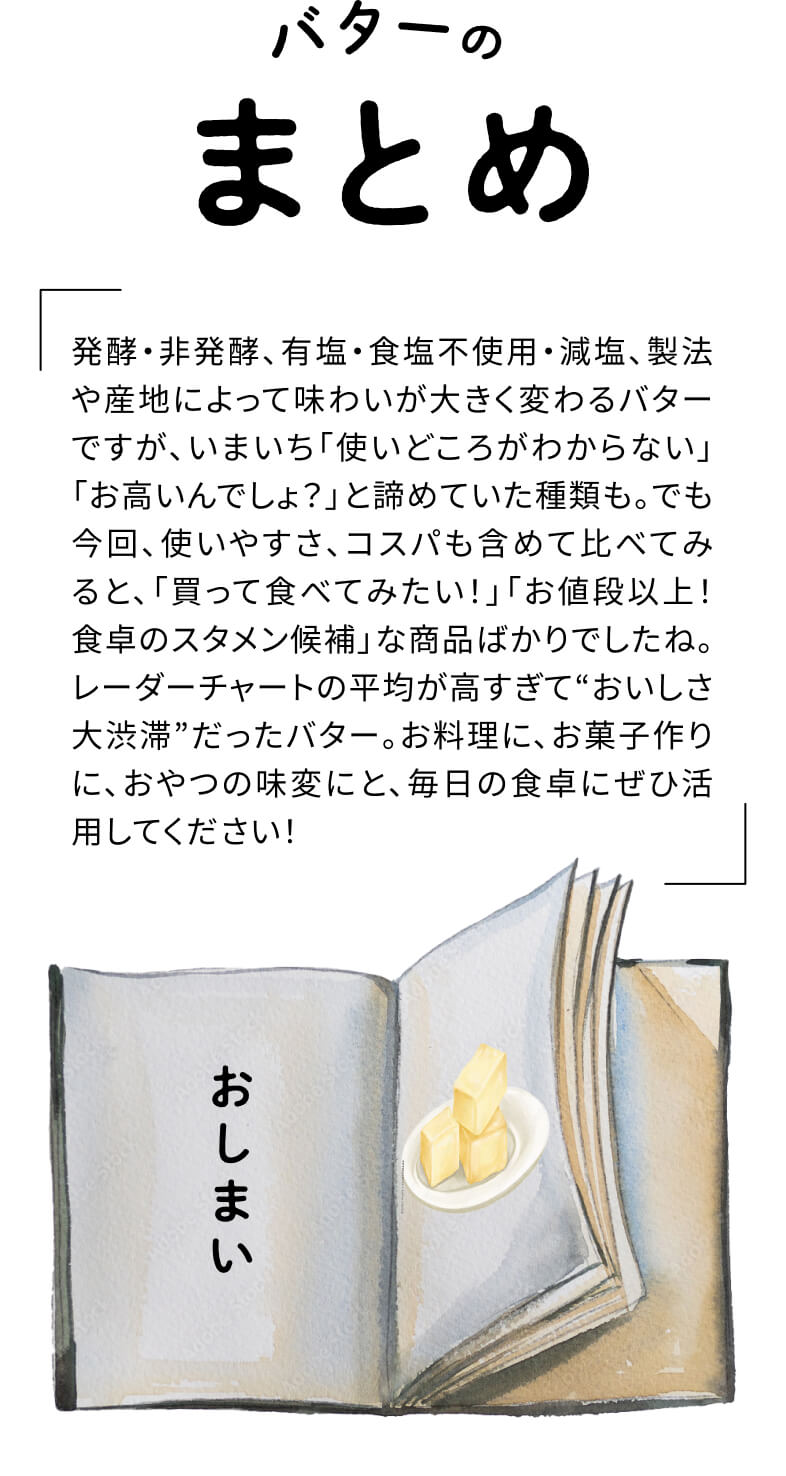 バターの
まとめ
発酵・非発酵、有塩・食塩不使用・減塩、製法
や産地によって味わいが大きく変わるバター
ですが、いまいち「使いどころがわからない」
「お高いんでしょ？」と諦めていた種類も。でも
今回、使いやすさ、コスパも含めて比べてみ
ると、「買って食べてみたい！」「お値段以上！
食卓のスタメン候補」な商品ばかりでしたね。
レーダーチャートの平均が高すぎて“おいしさ
大渋滞”だったバター。お料理に、お菓子作り
に、おやつの味変にと、毎日の食卓にぜひ活
用してください！
おしまい